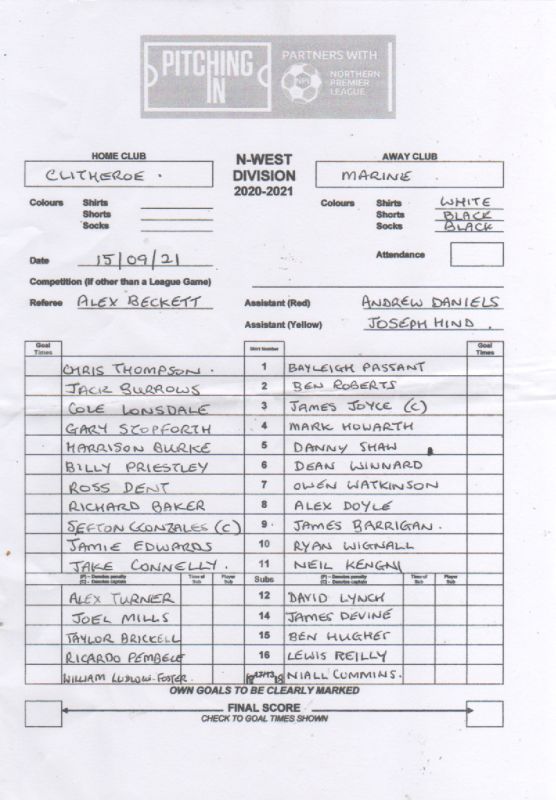 PITCHING IN
PARTNERS WITH
NPL
NORTHERN PREMIER LEAGUE
HOME CLUB
N-WEST DIVISION 2020-2021
AWAY CLUB
CLITHEROE .
MARINE
Colours Shirts
Shorts
Socks
Colours Shirts WHITE
Shorts BLACK
Socks BLACK
Date 15/09/21
Attendance
Competition (if other than a League Game)
Referee ALEX BECKETT Assistant (Red) ANDREW DANIELS
Assistant (Yellow) JOSEPH HIND .
Goal Times Shirt Number Goal Times
CHRIS THOMPSON . 1 BAYLEIGH PASSANT
JACK BURROWS 2 BEN ROBERTS
COLE LONSDALE 3 JAMES JOYCE (C)
GARY STOPFORTH 4 MARK HOWARTH
HARRISON BURKE 5 DANNY SHAW
BILLY PRIESTLEY 6 DEAN WINNARD
ROSS DENT 7 OWEN WATKINSON
RICHARD BAKER 8 ALEX DOYLE
SEFTON GONZALES (C) 9 JAMES BARRIGAN .
JAMIE EDWARDS 10 RYAN WIGNALL
JAKE CONNELLY . 11 NEIL KENGNI
(P) - Denotes penalty (C) - Denotes captain Time of Sub Player Sub Subs (P) - Denotes penalty (C) - Denotes captain Time of Sub Player Sub
ALEX TURNER 12 DAVID LYNCH
JOEL MILLS 14 JAMES DEVINE
TAYLOR BRICKELL 15 BEN HUGHES
RICARDO PEMBELE 16 LEWIS REILLY
WILLIAM LUDLOW-FOSTER . 18 NIALL CUMMINS .
OWN GOALS TO BE CLEARLY MARKED
FINAL SCORE
CHECK TO GOAL TIMES SHOWN